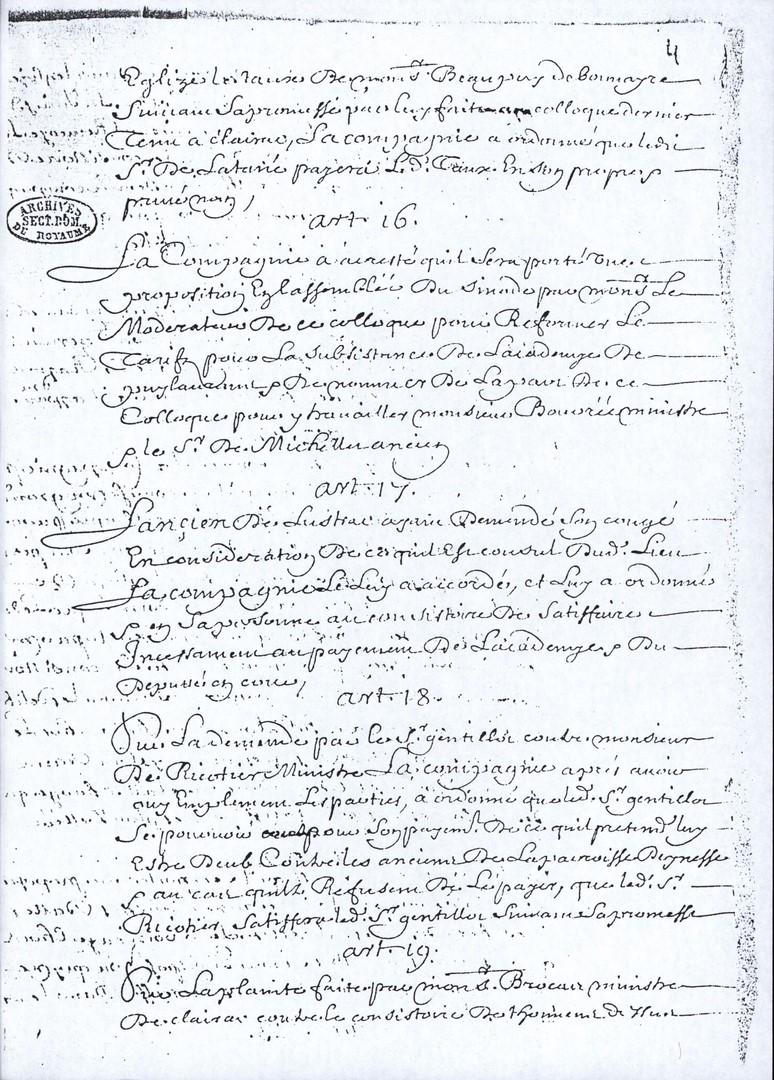 4
Eglize le taux De mons.r Beaupuy de bomayre
Suivant Sa promesse par luy faite au colloque dernier
Tenu a clairac, La compagnie a ordonné que ledit
S.r De Latanè payera Led. Taux En son propre &
privé nom,
ARCHIVES
SECT. DOM.
DU ROYAUME
art 16.
La Compagnie a arresté quil sera porté une
proposition En lassemblée Du sinode par mons.r Le
Moderateur De ce colloque pour Reformer Le
Tarif pour La subsistance De Lacademye De
puylaurens & De nommer De La part De ce
Colloque pour y travailler monsieur ministre
& le S.r De Michel ancien
art. 17.
Lancien De Lustrac ayant Demandé Son congé
En consideration De ce quil Est consul Dud. Lieu
La compagnie Le Luy a accordé, et Luy a ordonné
& en Sa personne au consistoire De Satiffaire
Incessament au payement De Lacademye & Du
Deputé en cour,
art. 18.
Sur La demande par le S.r gentillot contre monsieur
De Ricotier Ministre La compagnie apres avoir
ouy Emplement Les parties, a ordonné que led. S.r gentillot
Se pourvoir pour Son payem.t De ce quil pretend luy
Estre Deub Contre les anciens De La parroisse Deynesse
& au cas quils Refusent De Le payer, que led. S.r
Ricotier Satiffera led. S.r gentillot Suivant Sa promesse
art. 19.
Sur La plainte faite par mons.r Brocas ministre
De clairac contre le consistoire De thonneins